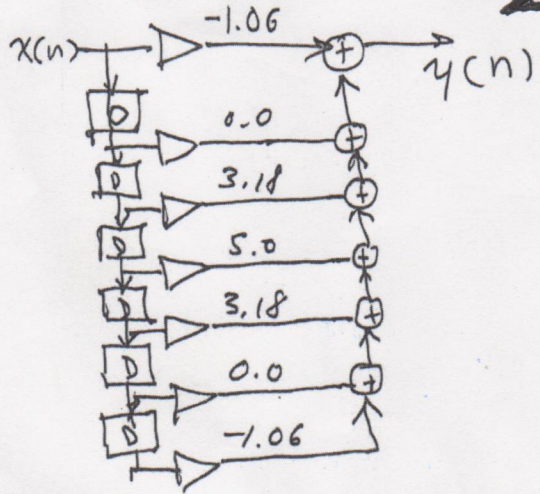 -1.06
x(n) + y(n)
D
0.0 +
D
3.18 +
D
5.0 +
D
3.18 +
D
0.0 +
D
-1.06